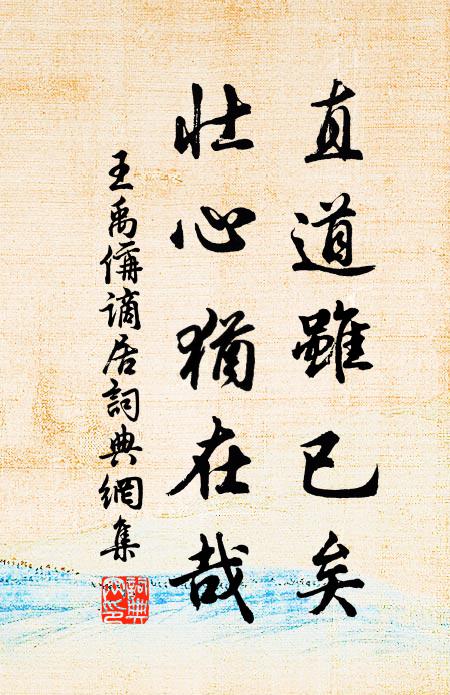 直道雖已矣
壯心猶在哉
王禹偁謫居詞典網集